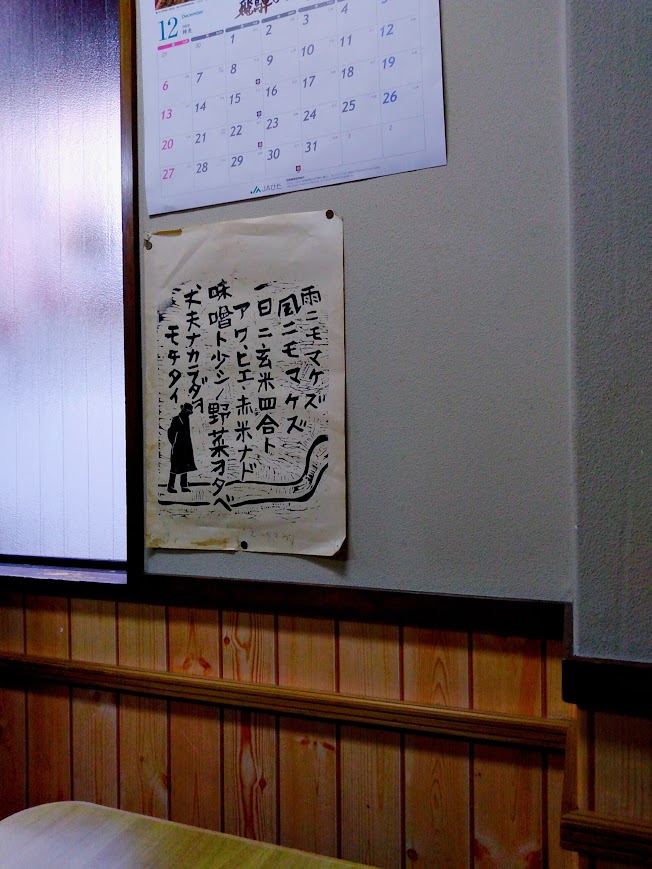 12
December
師走
飛騨
29 30 1 2 3 4 5
6 7 8 9 10 11 12
13 14 15 16 17 18 19
20 21 22 23 24 25 26
27 28 29 30 31 1 2
JAひだ
雨ニモマケズ
風ニモマケズ
一日ニ玄米四合ト
アワ、ヒエ、赤米ナド
味噌ト少シノ野菜ヲタベ
丈夫ナカラダヲ
モチタイ